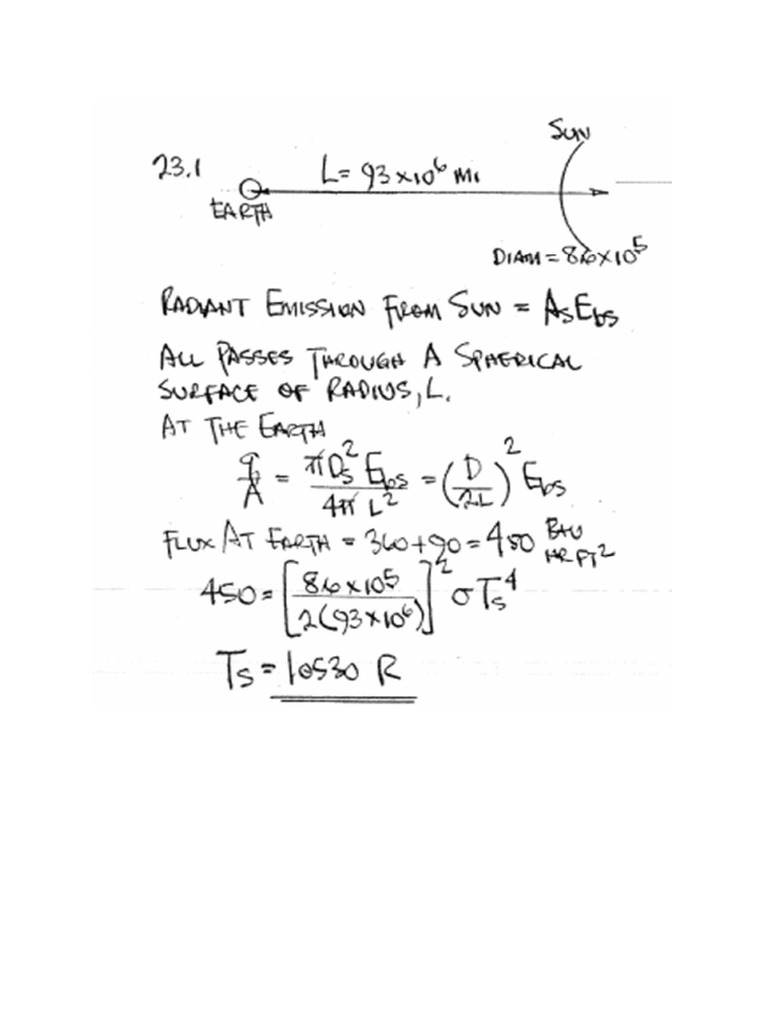 SUN
23.1
L = 93×10⁶ MI
EARTH
DIAM = 8.6×10⁵
RADIANT EMISSION FROM SUN = AₛE_bs
ALL PASSES THROUGH A SPHERICAL
SURFACE OF RADIUS, L.
AT THE EARTH
q/A = πDₛ² E_bs / 4π L² = (D/2L)² E_bs
FLUX AT EARTH = 360+90 = 450 BTU/HR FT²
450 = [8.6×10⁵ / 2(93×10⁶)]² σTₛ⁴
Tₛ = 10530 R